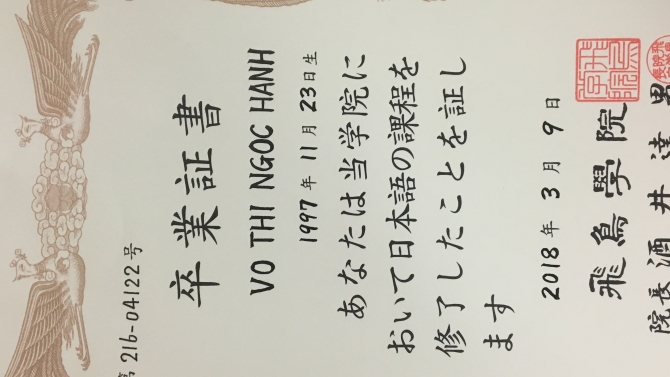 第 216-04122 号
卒業証書
VO THI NGOC HANH
1997 年 11 月 23 日生
あなたは当学院に
おいて日本語の課程を
修了したことを証し
ます
2018 年 3 月 9 日
飛鳥學院
院長 酒井達男